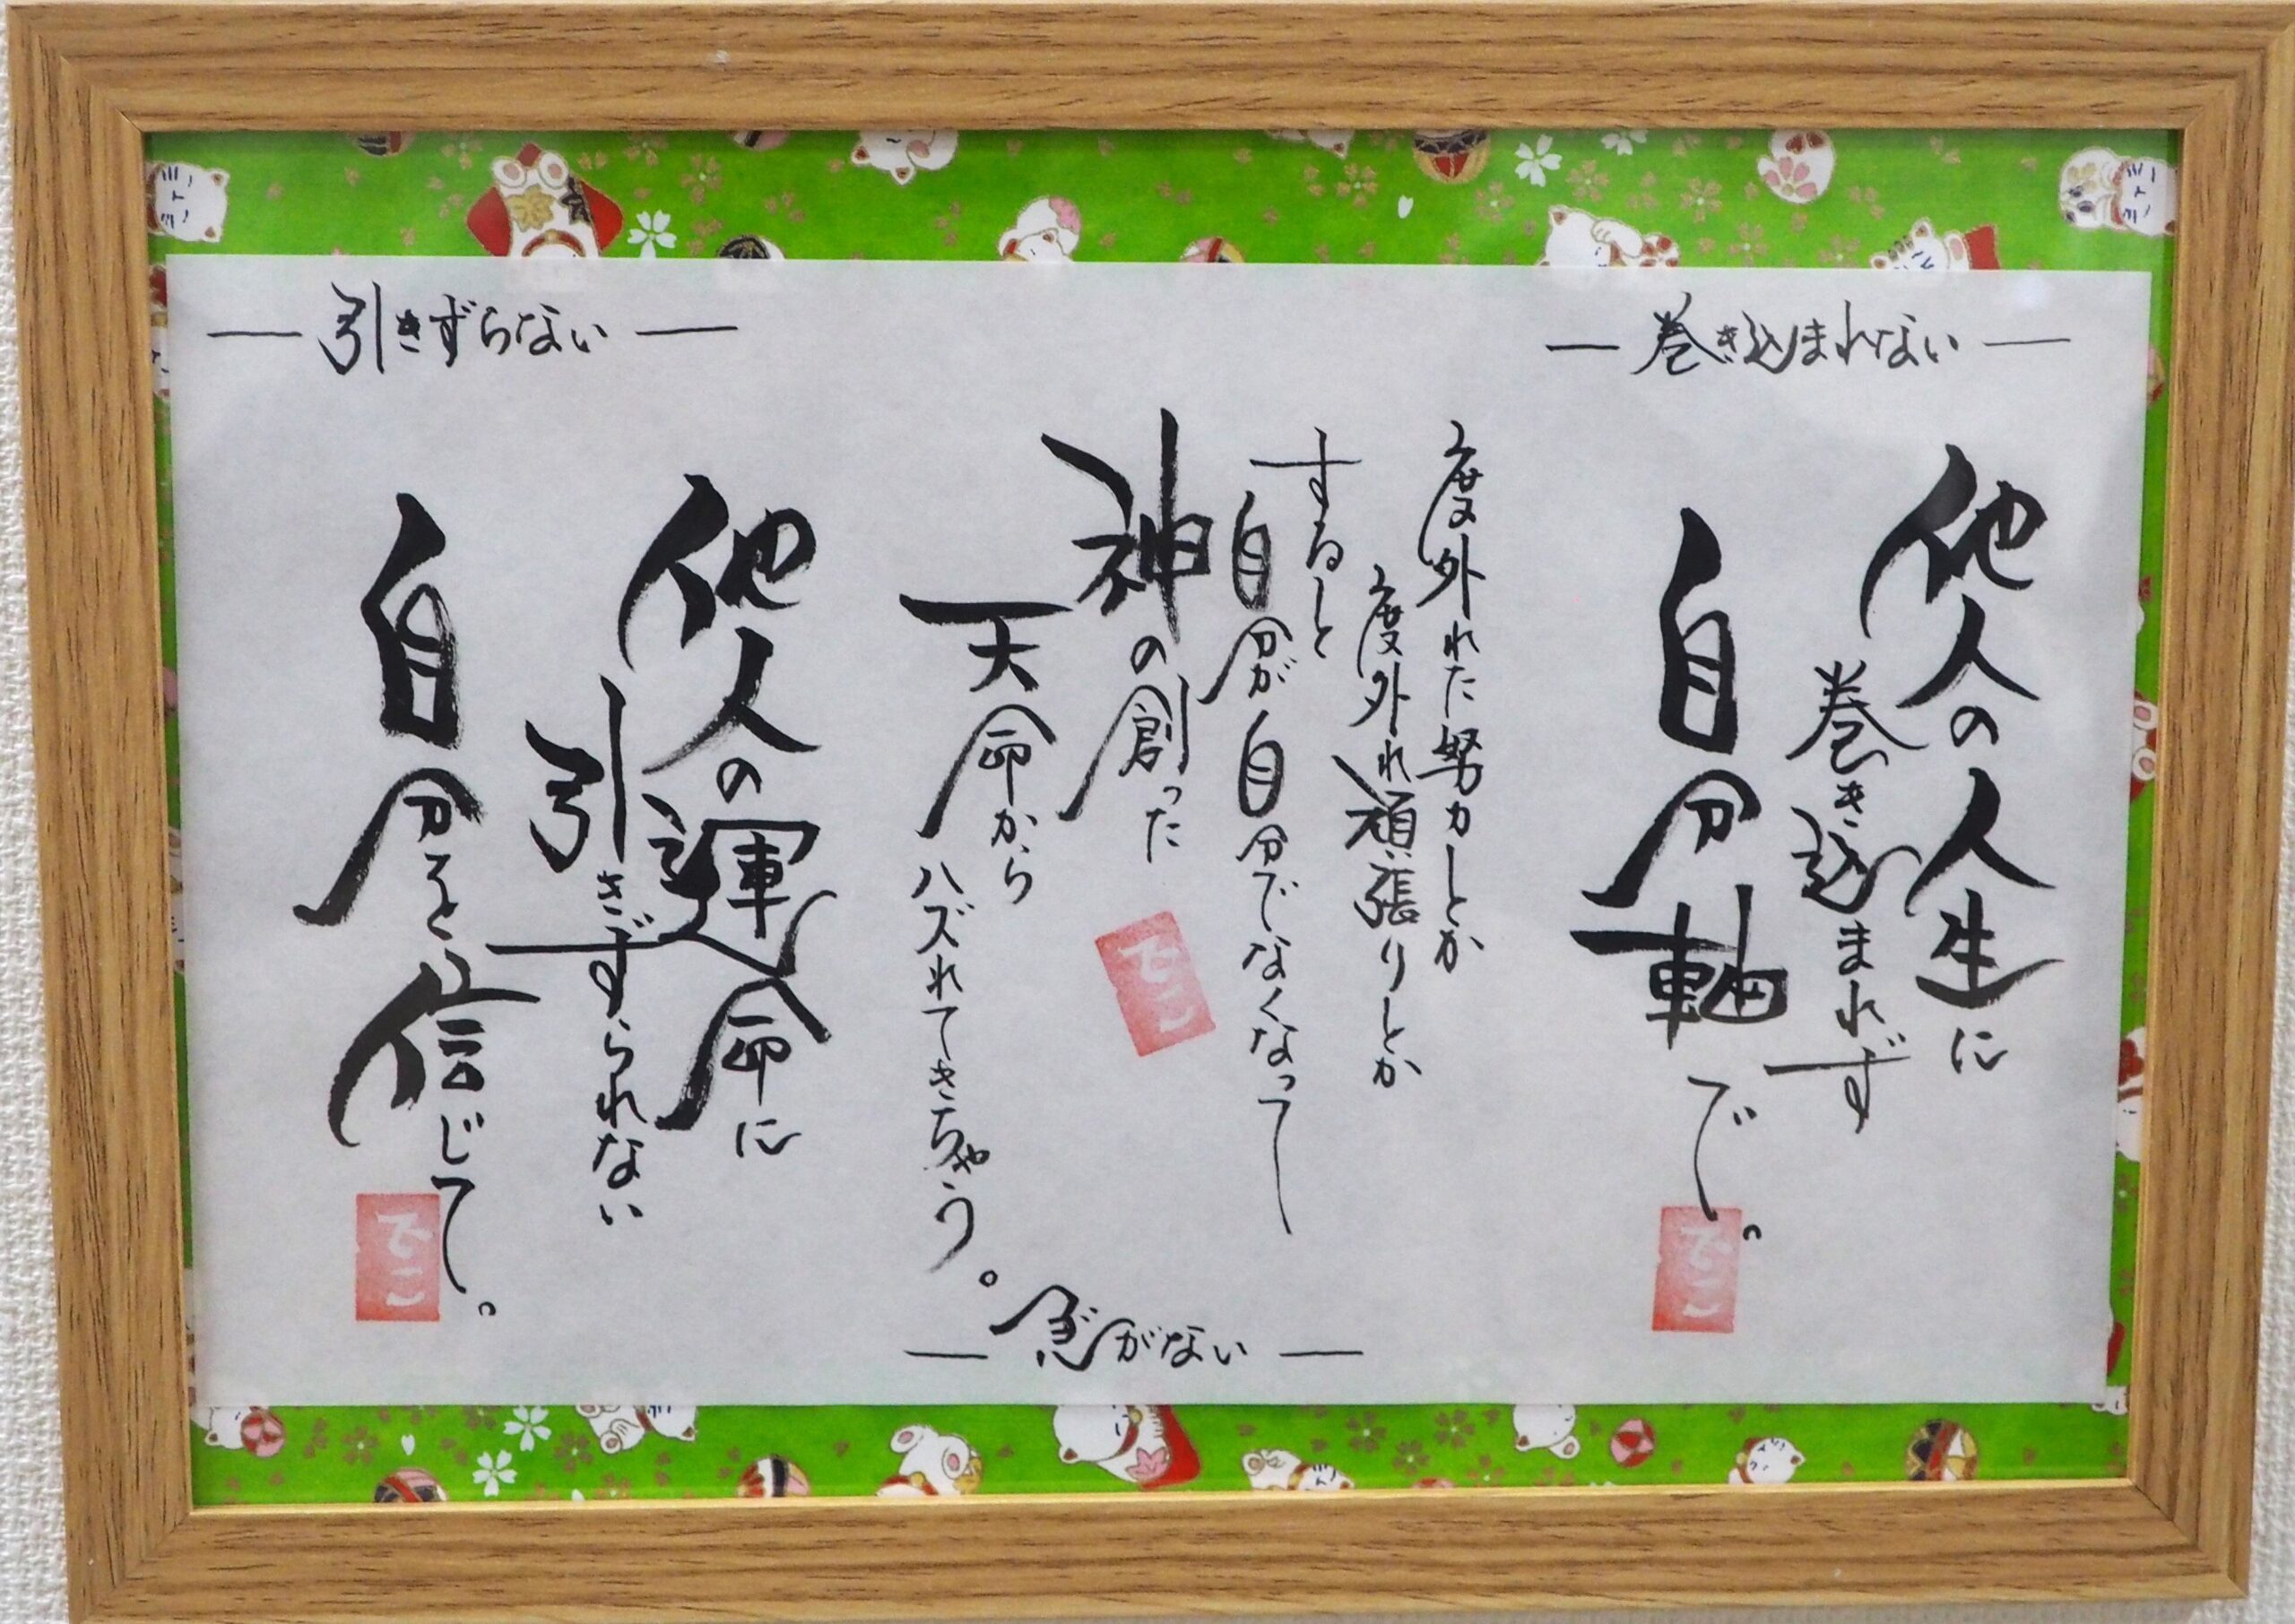 ― 巻き込まれない ―
他人の人生に
巻き込まれず
自分軸で。
でこ
度外れた努力とか
度外れ頑張りとか
すると
自分が自分でなくなって
神の創った
天命から
ハズれてきちゃう。
でこ
― 急がない ―
― 引きずらない ―
他人の運命に
引きずられない
自分を信じて。
でこ